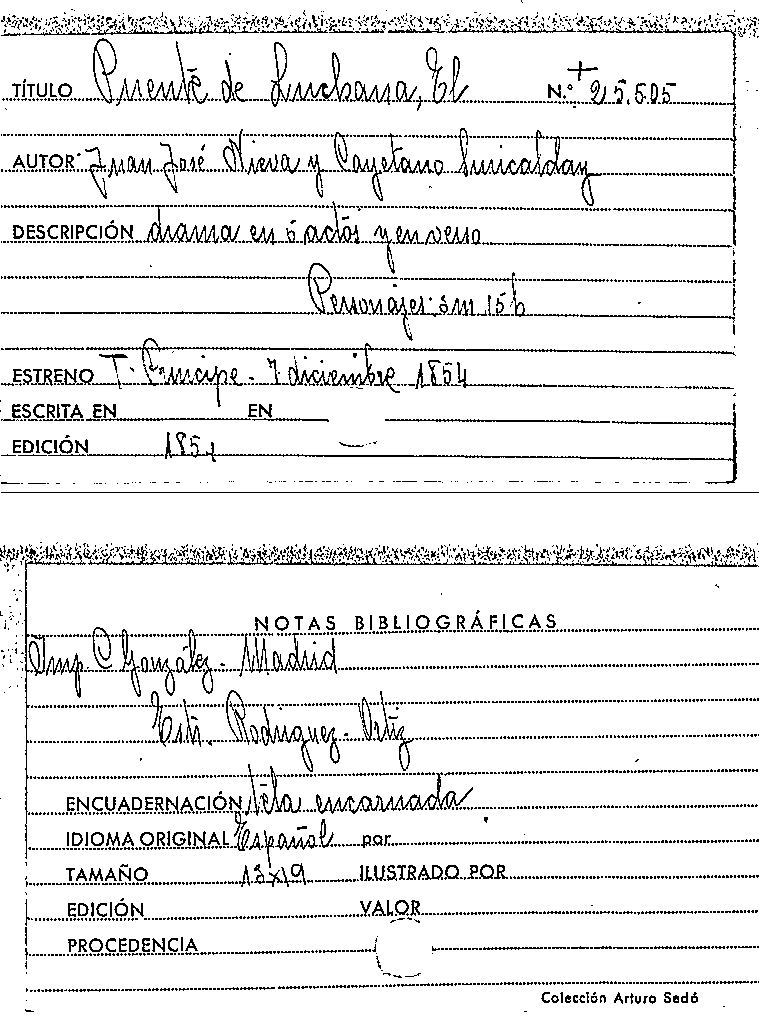 TÍTULO Puente de Luchana, El N.º + 25.505
AUTOR Juan José Nieva y Cayetano Suricalday
DESCRIPCIÓN drama en 5 actos y en verso
Personajes: 3m 15h
ESTRENO T. Principe - 7 diciembre 1854
ESCRITA EN EN
EDICIÓN 1854
NOTAS BIBLIOGRÁFICAS
Imp C González - Madrid
Estr. Rodriguez - Ortiz
ENCUADERNACIÓN tela encarnada
IDIOMA ORIGINAL Español por
TAMAÑO 13x19 ILUSTRADO POR
EDICIÓN VALOR
PROCEDENCIA
Colección Arturo Sedó